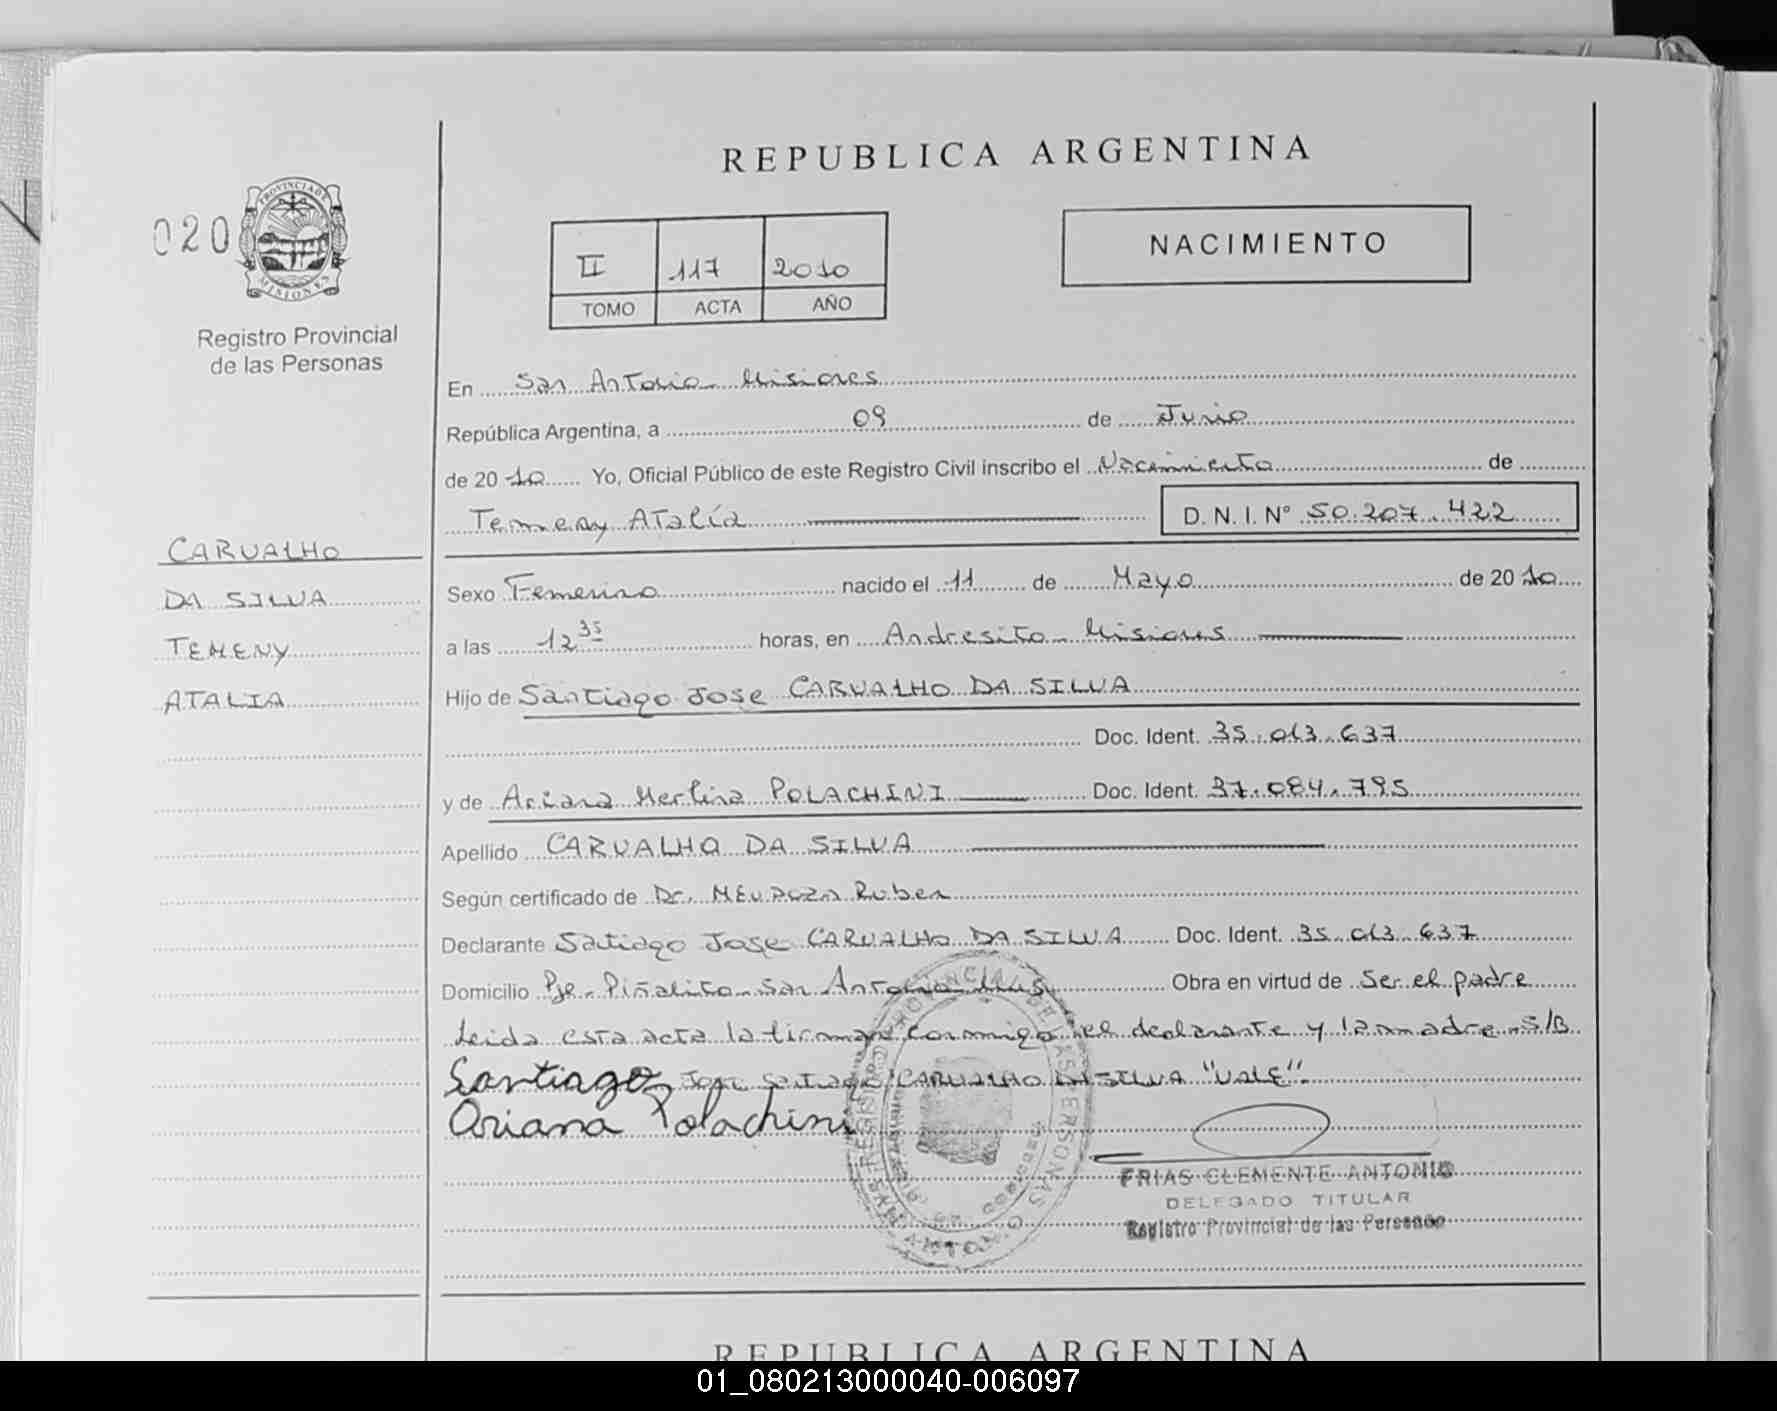 REPUBLICA ARGENTINA
020
PROVINCIA DE
MISIONES
Registro Provincial
de las Personas
II 117 2010
TOMO ACTA AÑO
NACIMIENTO
En San Antonio Misiones
República Argentina, a 09 de Junio
de 20 10 Yo, Oficial Público de este Registro Civil inscribo el Nacimiento de
Temeny Atalía D. N. I. Nº 50.207.422
CARVALHO
DA SILVA
TEMENY
ATALIA
Sexo Femenino nacido el 11 de Mayo de 20 10
a las 12 35 horas, en Andresito Misiones
Hijo de Santiago Jose CARVALHO DA SILVA
Doc. Ident. 35.013.637
y de Ariana Merlina POLACHINI Doc. Ident. 37.084.795
Apellido CARVALHO DA SILVA
Según certificado de Dr. MENDOZA Ruben
Declarante Satiago Jose CARVALHO DA SILVA Doc. Ident. 35.013.637
Domicilio Pje. Piñalito San Antonio Mns Obra en virtud de Ser el padre
Leida esta acta la firman conmigo el declarante y la madre S/B
Santiago Jose Santiago CARVALHO DA SILVA "VALE".
Ariana Polachini
FRIAS CLEMENTE ANTONIO
DELEGADO TITULAR
Registro Provincial de las Personas
REPUBLICA ARGENTINA
01_080213000040-006097